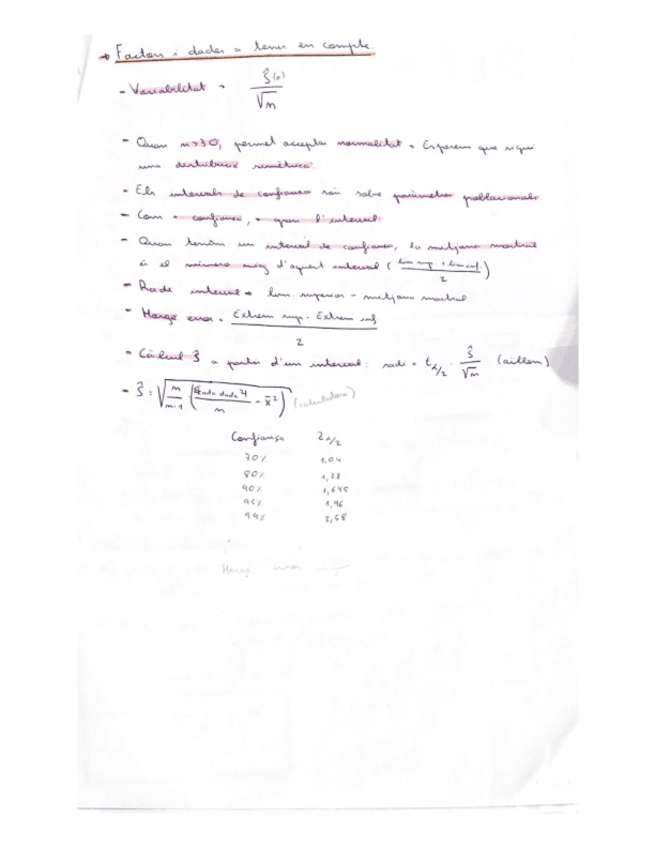 → Factors i dades a tenir en compte.
- Variabilitat = Ŝ(σ) / √n
- Quan n>30, permet acceptar normalitat = Esperem que sigui
una distribució simètrica.
- Els intervals de confiança són sobre paràmetres poblacionals
- Com + confiança, + gran l'interval
- Quan tenim un interval de confiança, la mitjana mostral
és el número mig d'aquest interval (lim sup. + lim inf. / 2)
- Radi interval = lim. superior - mitjana mostral
- Marge error = Extrem sup - Extrem inf / 2
- Càlcul Ŝ a partir d'un interval: radi = t α/2 · Ŝ/√n (aïllem)
- Ŝ = √( n/n-1 ( Σcada dada² / n - x̄² ) ) (calculadora)
Confiança Z α/2
70% 1,04
80% 1,28
90% 1,645
95% 1,96
99% 2,58
Marge error